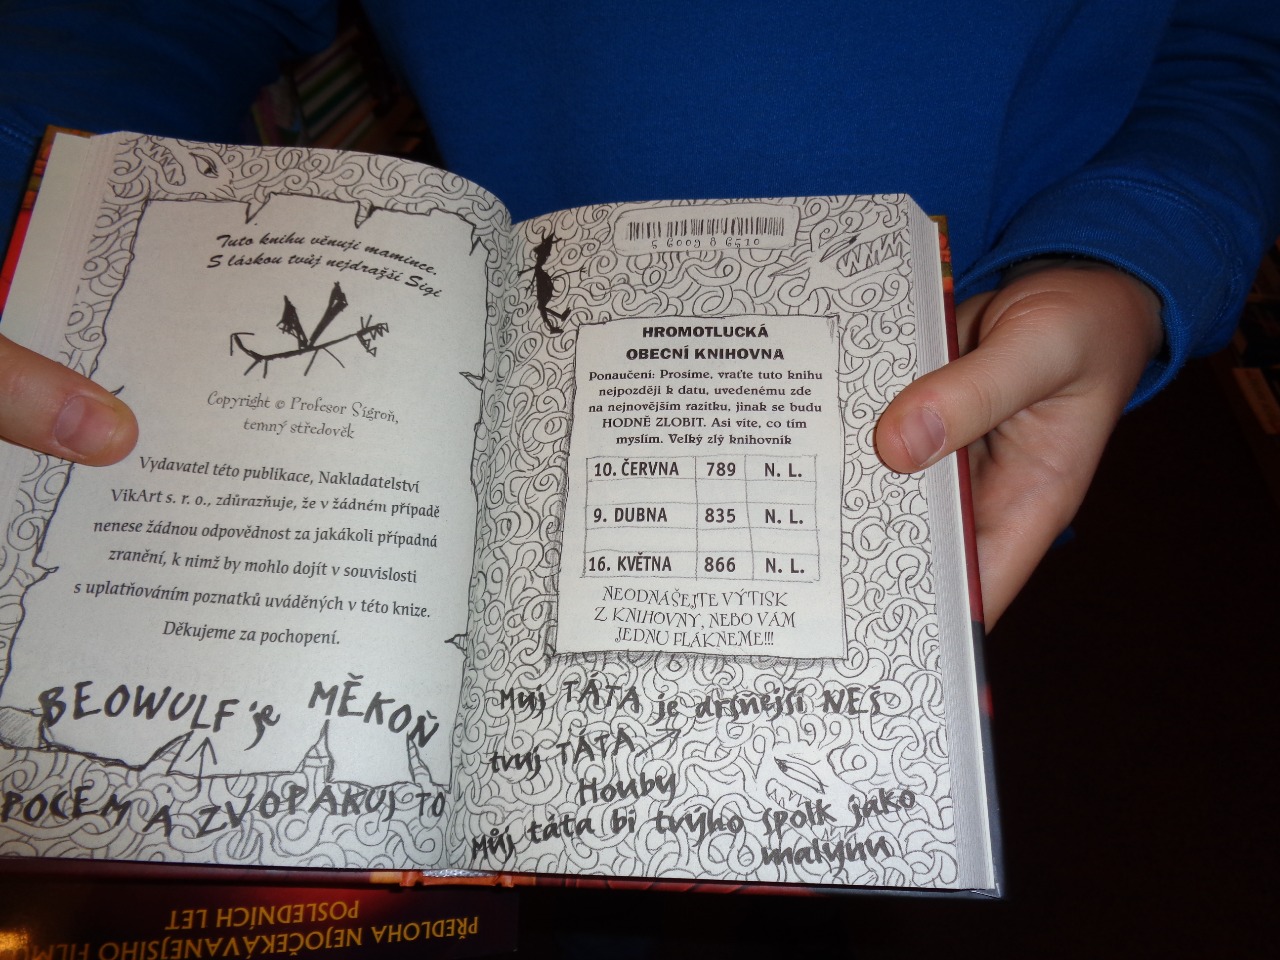 Tuto knihu věnuji mamince.
S láskou tvůj nejdražší Sigi
Copyright © Profesor Sigroň,
temný středověk
Vydavatel této publikace, Nakladatelství
VikArt s. r. o., zdůrazňuje, že v žádném případě
nenese žádnou odpovědnost za jakákoli případná
zranění, k nimž by mohlo dojít v souvislosti
s uplatňováním poznatků uváděných v této knize.
Děkujeme za pochopení.
BEOWULF je MĚKOŇ
POCEM A ZVOPAKUJ TO
HROMOTLUCKÁ
OBECNÍ KNIHOVNA
Ponaučení: Prosíme, vraťte tuto knihu
nejpozději k datu, uvedenému zde
na nejnovějším razítku, jinak se budu
HODNĚ ZLOBIT. Asi víte, co tím
myslím. Velký zlý knihovník
10. ČERVNA 789 N. L.
9. DUBNA 835 N. L.
16. KVĚTNA 866 N. L.
NEODNÁŠEJTE VÝTISK
Z KNIHOVNY, NEBO VÁM
JEDNU FLÁKNEME!!!
Muj TÁTA je drsňejší NEŠ
tvuj TÁTA
Houby
Můj táta bi tvýho spolk jako
malynu
PŘEDLOHA NEJOČEKÁVANĚJŠÍHO FILMU
POSLEDNÍCH LET